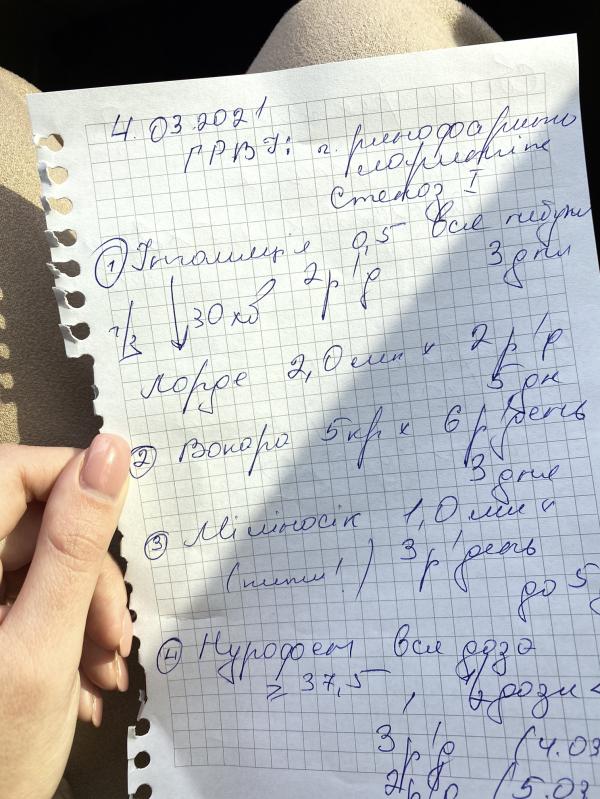 4.03.2021
ГРВІ: г. ринофаринго
ларингіт
Стеноз I
① Інгаляція 0,5 вся небули
2 р/д 3 дні
ч/з ↓ 30 хв
Лорде 2,0 мл х 2 р/д
5 дн
② Вокара 5 кр х 6 р/день
3 дня
③ Міліносік 1,0 мл х
( ) 3 р/день
до 5
④ Нурофєн вся доза
≥ 37,5 , 1/2 дози
3 р/д (4.03
2 р/д (5.03